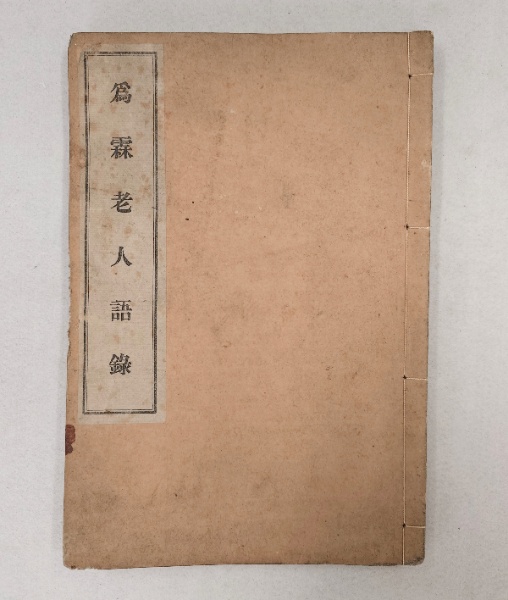 爲霖老人語錄